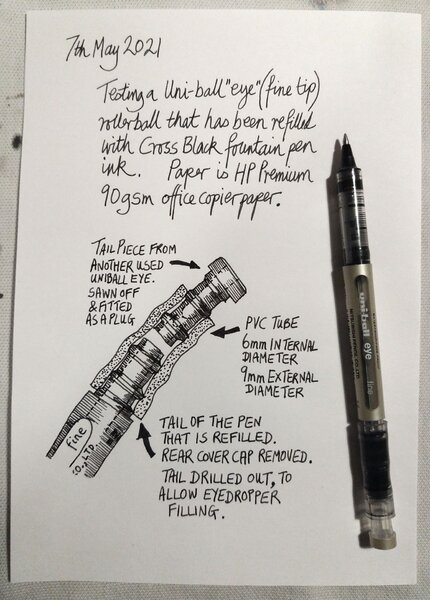 7th May 2021
Testing a Uni-ball "eye" (fine tip)
rollerball that has been refilled
with Cross Black fountain pen
ink. Paper is HP Premium
90gsm office copier paper.
TAIL PIECE FROM
ANOTHER USED
UNIBALL EYE.
SAWN OFF
& FITTED
AS A PLUG
PVC TUBE
6mm INTERNAL
DIAMETER
9mm EXTERNAL
DIAMETER
TAIL OF THE PEN
THAT IS REFILLED.
REAR COVER CAP REMOVED.
TAIL DRILLED OUT, TO
ALLOW EYEDROPPER
FILLING.
fine
CO., LTD.
uni-ball eye fine